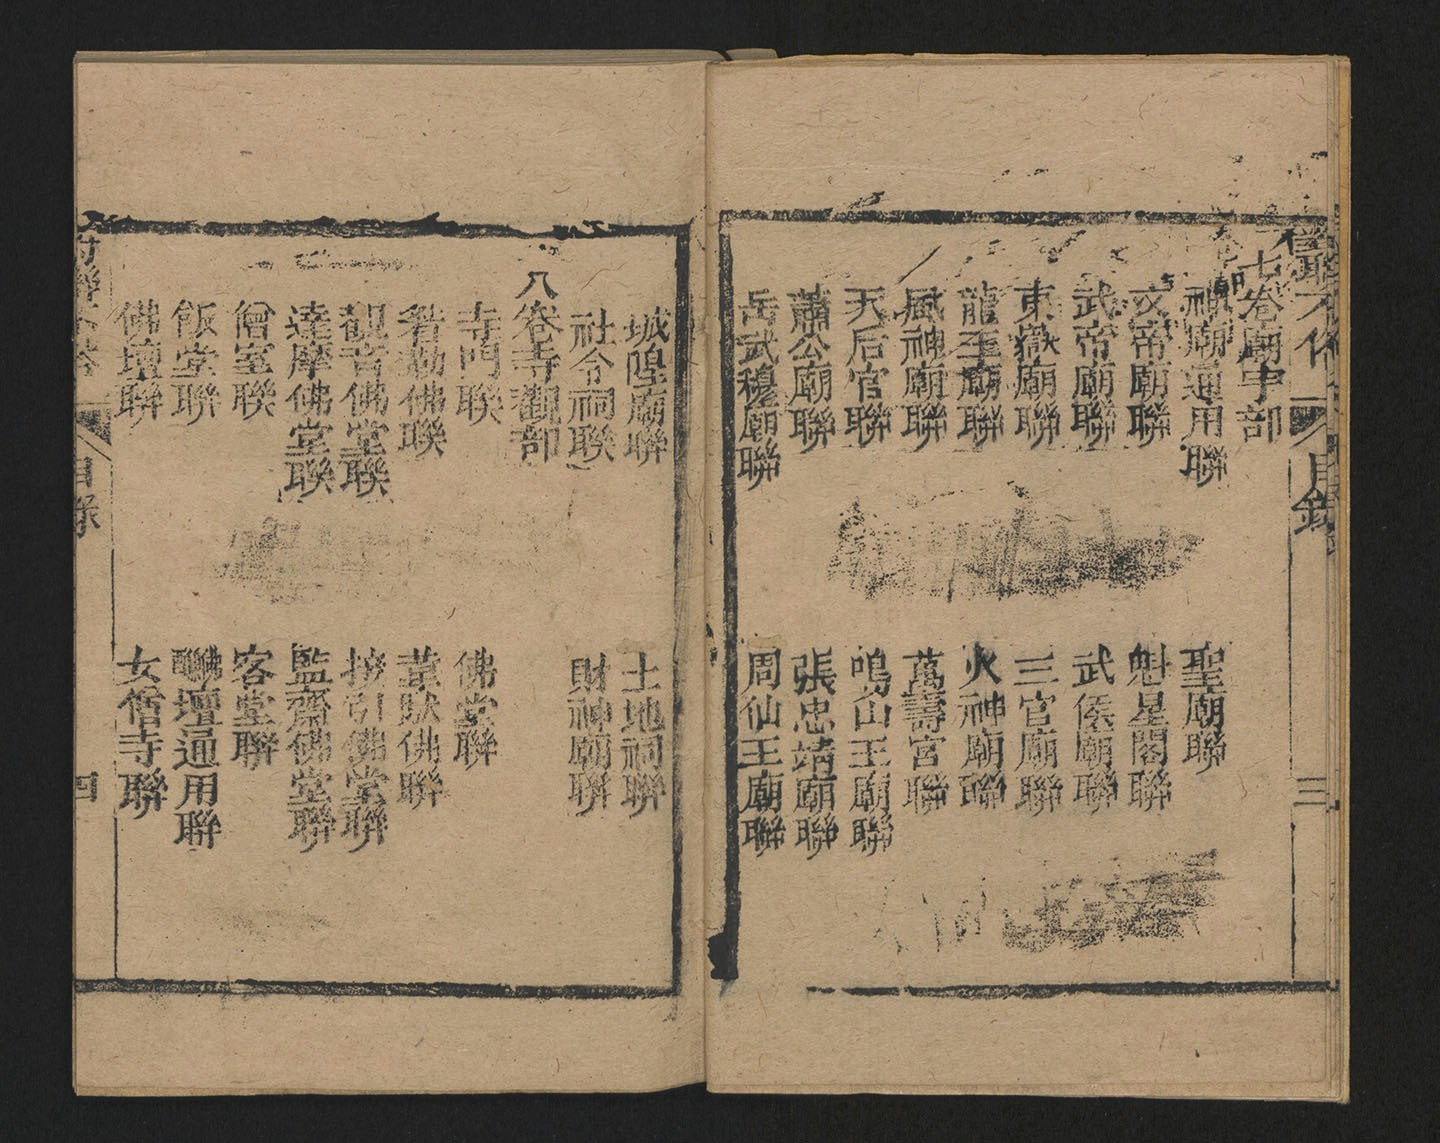 七卷廟中部
神廟通用聯
聖廟聯
文帝廟聯
魁星閣聯
武帝廟聯
武侯廟聯
東嶽廟聯
三官廟聯
龍王廟聯
火神廟聯
風神廟聯
萬壽宮聯
天后宮聯
鳴山王廟聯
蕭公廟聯
張忠靖廟聯
岳武穆廟聯
周仙王廟聯
目錄
三
城隍廟聯
土地祠聯
社令祠聯
財神廟聯
八卷寺觀部
寺門聯
佛堂聯
彌勒佛聯
韋馱佛聯
觀音佛堂聯
接引佛堂聯
達摩佛堂聯
監齋佛堂聯
僧室聯
客堂聯
飯堂聯
佛壇通用聯
佛壇聯
女僧寺聯
目錄
四